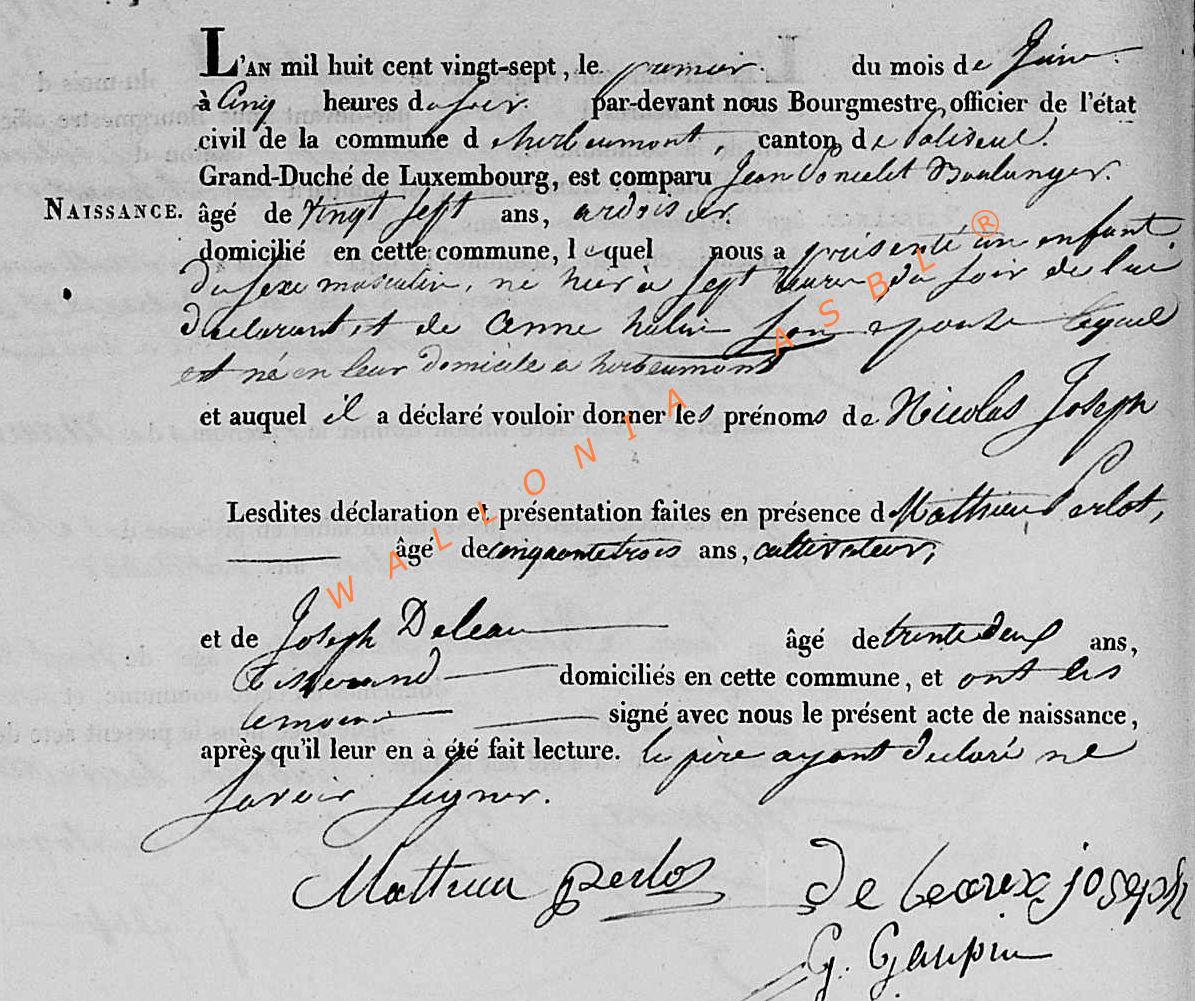 L'AN mil huit cent vingt-sept, le premier du mois de Juin.
à Cinq heures du soir. par-devant nous Bourgmestre, officier de l'état
civil de la commune d herbeumont, canton de paliseul.
Grand-Duché de Luxembourg, est comparu Jean poncelet Boulanger.
NAISSANCE. âgé de vingt sept ans, ardoisier.
domicilié en cette commune, lequel nous a présenté un enfant
du sexe masculin, né hier à sept heures du soir de lui
declarant et de Anne son epouse lequel
est né en leur domicile a herbeumont
et auquel il a déclaré vouloir donner les prénoms de Nicolas Joseph
Lesdites déclaration et présentation faites en présence d Mathieu Perlot,
âgé de cinquante trois ans, cultivateur,
et de Joseph Deleau âgé de trente deux ans,
Tisserand domiciliés en cette commune, et ont les
temoins signé avec nous le présent acte de naissance,
après qu'il leur en à été fait lecture. le père ayant déclaré ne
savoir signer.
Mathieu perlot de leaux joseph
G.
WALLONIA ASBL ®